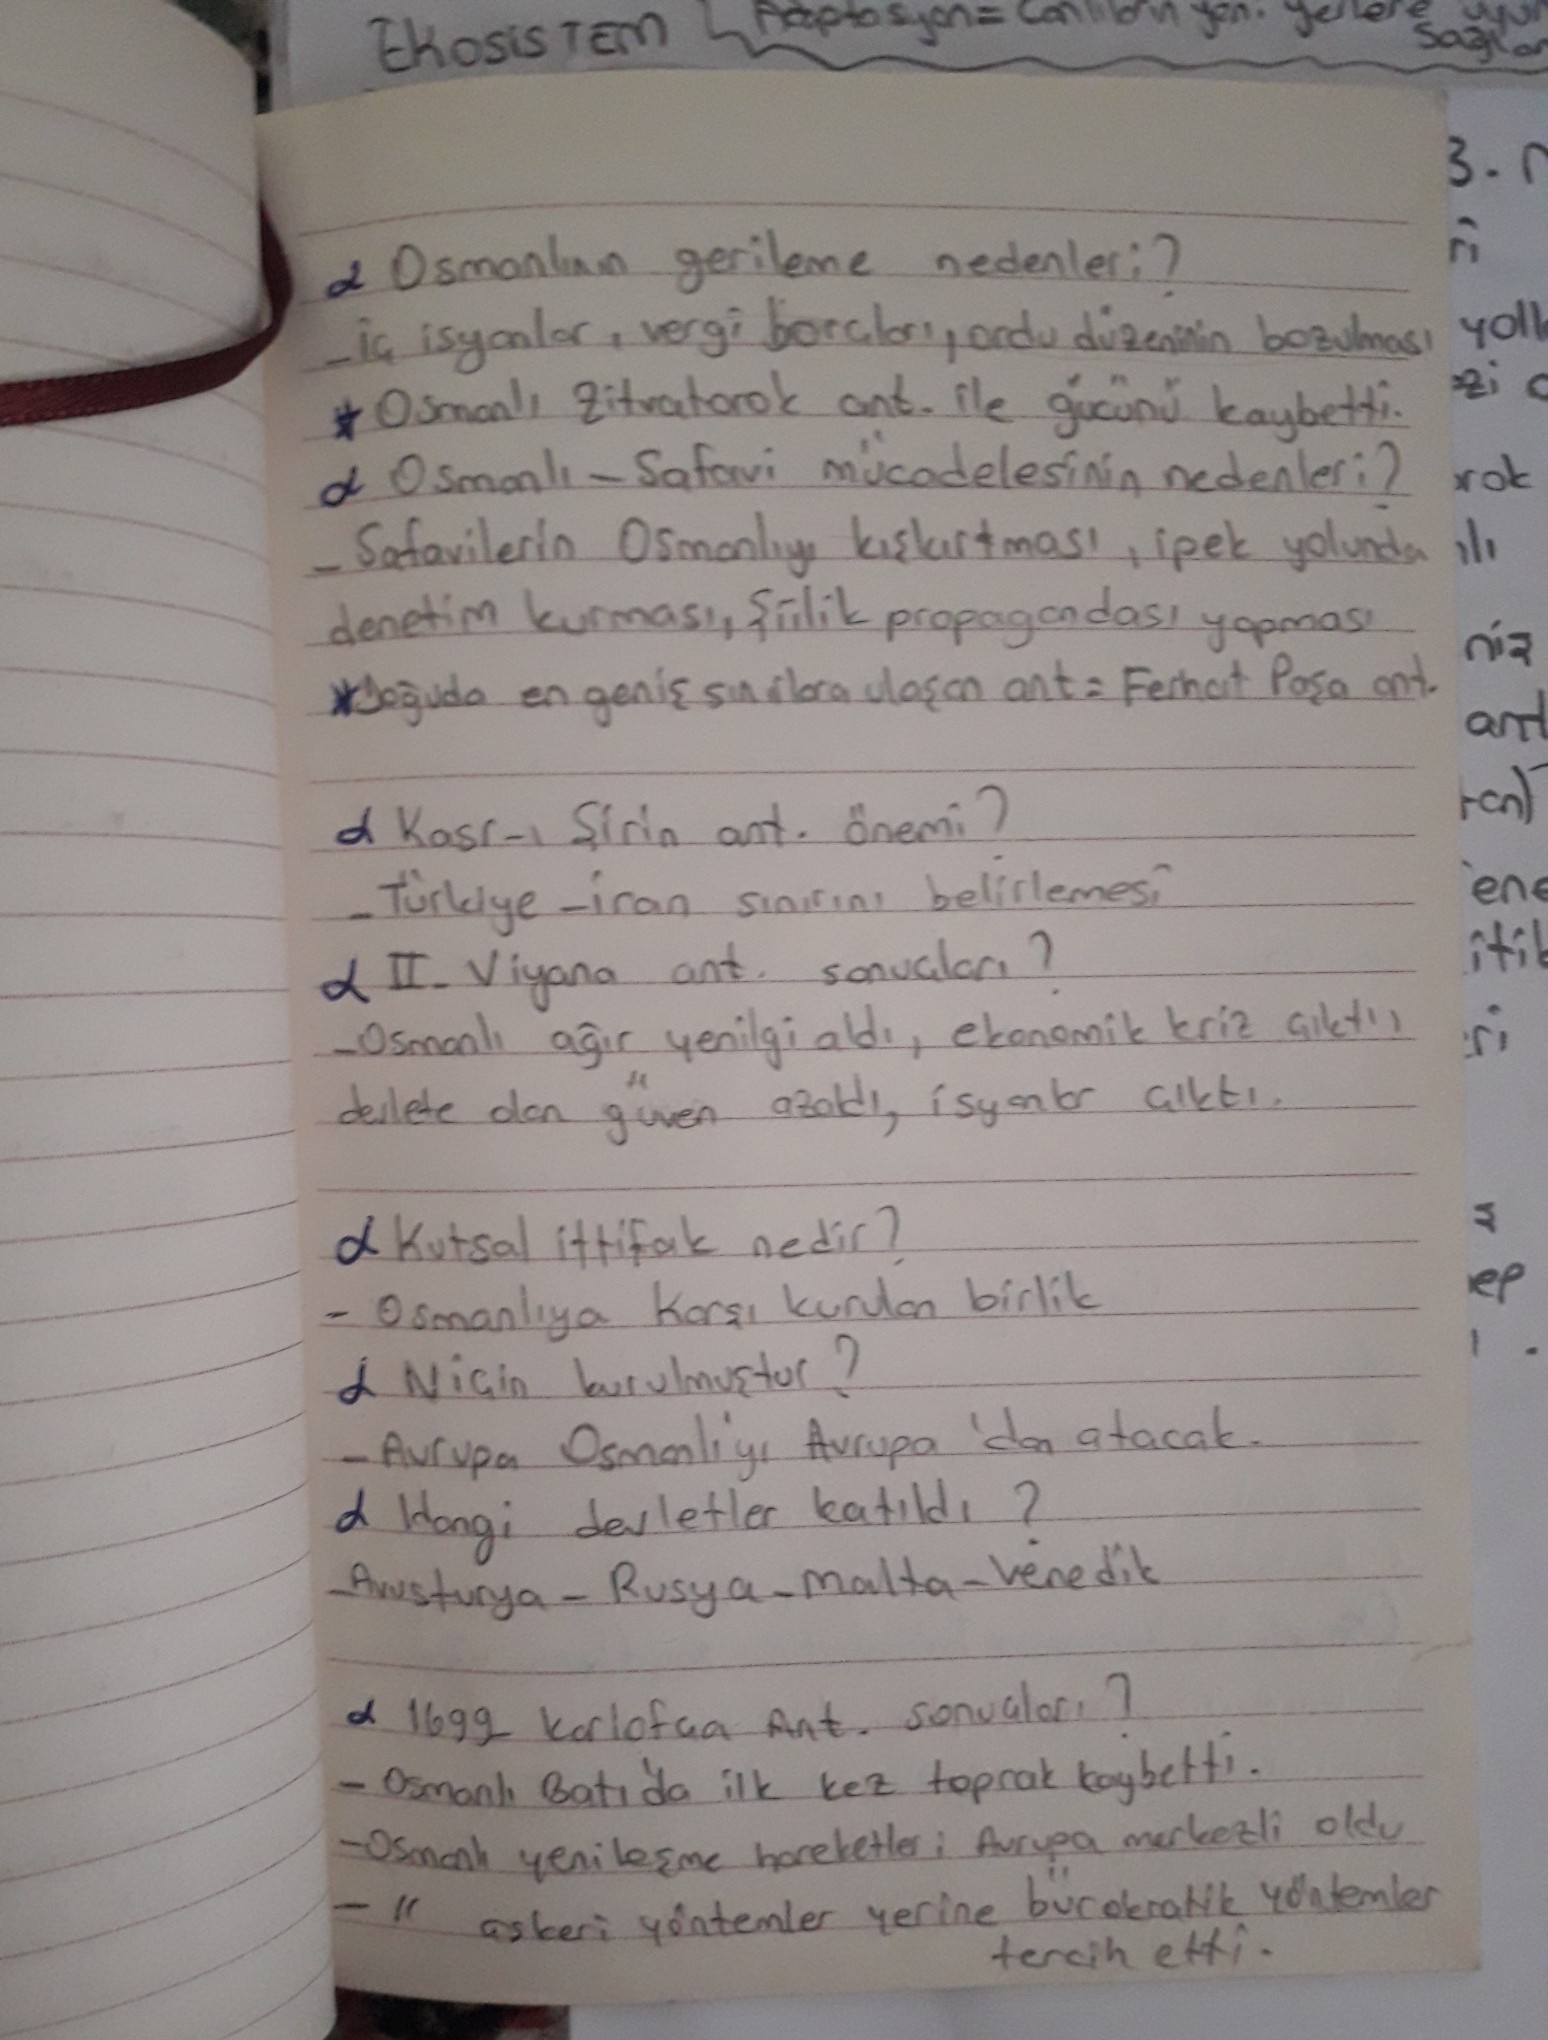 EKOSİSTEM Adaptasyon = Canlıların yeni yerlere
α Osmanlının gerileme nedenleri?
- iç isyanlar, vergi borçları, ordu düzeninin bozulması
* Osmanlı Zitvatorok ant. ile gücünü kaybetti.
α Osmanlı - Safavi mücadelesinin nedenleri?
- Safavilerin Osmanlıyı kışkırtması, ipek yolunda
denetim kurması, Şiilik propagandası yapması
* Doğuda en geniş sınırlara ulaşan ant = Ferhat Paşa ant.
α Kasr-ı Şirin ant. önemi?
- Türkiye - iran sınırını belirlemesi
α II. Viyana ant. sonuçları?
- Osmanlı ağır yenilgi aldı, ekonomik kriz çıktı,
devlete olan güven azaldı, isyanlar çıktı.
α Kutsal ittifak nedir?
- Osmanlıya Karşı kurulan birlik
α Niçin kurulmuştur?
- Avrupa Osmanlı'yı Avrupa'dan atacak.
α Hangi devletler katıldı?
- Avusturya - Rusya - Malta - Venedik
α 1699 Karlofça Ant. sonuçları?
- Osmanlı Batı'da ilk kez toprak kaybetti.
- Osmanlı yenileşme hareketleri Avrupa merkezli oldu
- " askeri yöntemler yerine bürokratik yöntemler
tercih etti.